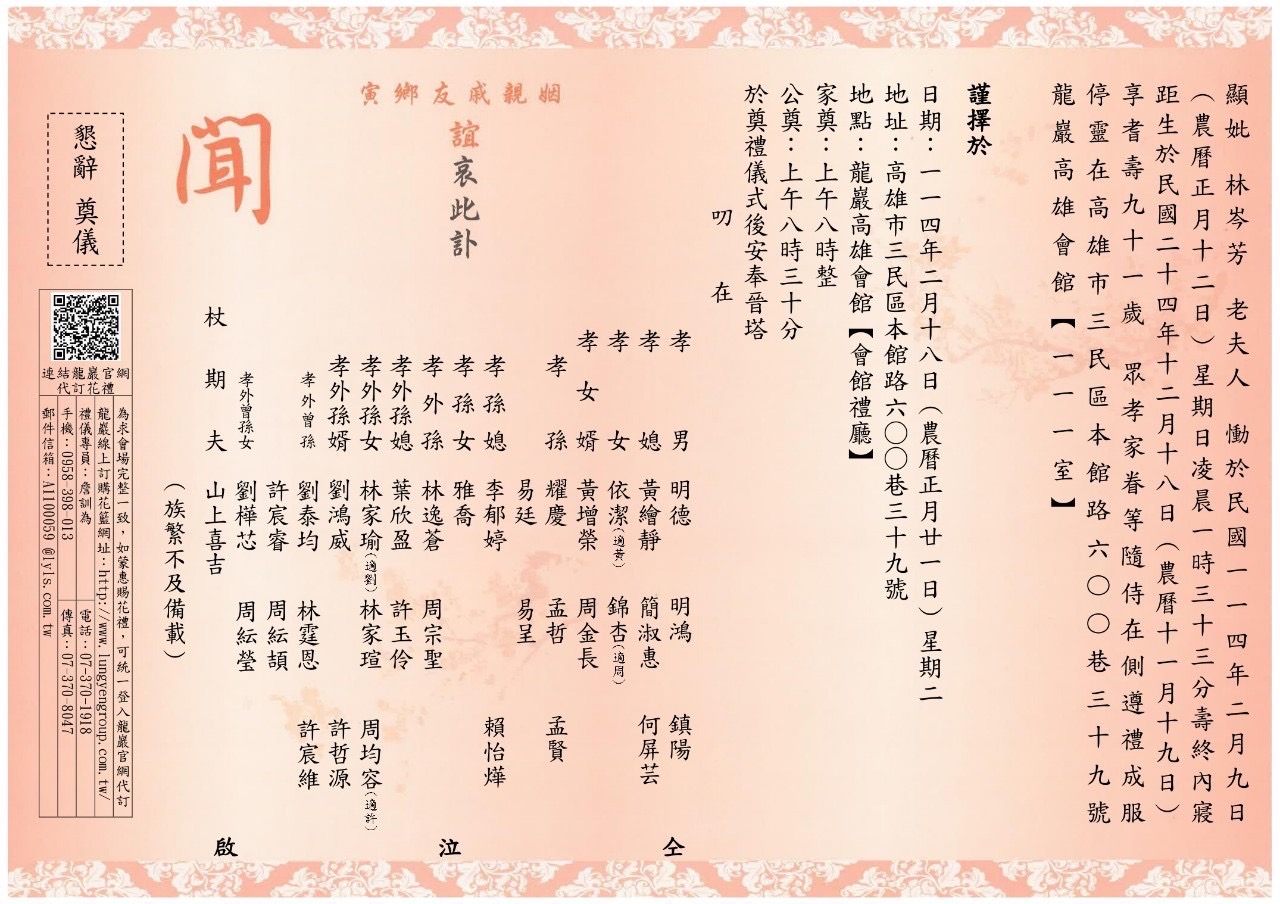 顯妣　林岑芳　老夫人　慟於民國一一四年二月九日
（農曆正月十二日）星期日凌晨一時三十三分壽終內寢
距生於民國二十四年十二月十八日（農曆十一月十九日）
享耆壽九十一歲　眾孝家眷等隨侍在側遵禮成服
停靈在高雄市三民區本館路六〇〇巷三十九號
龍巖高雄會館【一一一室】
謹擇於
日期：一一四年二月十八日（農曆正月廿一日）星期二
地址：高雄市三民區本館路六〇〇巷三十九號
地點：龍巖高雄會館【會館禮廳】
家奠：上午八時整
公奠：上午八時三十分
於奠禮儀式後安奉晉塔
叨在
姻親戚友鄉寅
誼哀此訃
聞
孝男　明德　明鴻　鎮陽
孝媳　黃繪靜　簡淑惠　何屏芸
孝女　依潔（適黃）　錦杏（適周）
孝女婿　黃增榮　周金長
孝孫　耀慶　孟哲　孟賢
易廷　易呈
孝孫媳　李郁婷　賴怡燁
孝孫女　雅喬
孝外孫　林逸蒼　周宗聖
孝外孫媳　葉欣盈　許玉伶
孝外孫女　林家瑜（適劉）　林家瑄　周均容（適許）
孝外孫婿　劉鴻威　許哲源
孝外曾孫　劉泰均　林霆恩　許宸維
許宸睿　周紜頡
孝外曾孫女　劉樺芯　周紜瑩
杖期夫　山上喜吉
（族繁不及備載）
仝　泣　啟
懇辭　奠儀
連結龍巖官網
代訂花禮
為求會場完整一致，如蒙惠賜花禮，可統一登入龍巖官網代訂
龍巖線上訂購花籃網址：http://www.lungyengroup.com.tw/
禮儀專員：詹訓為　電話：07-370-1918
手機：0958-398-013　傳真：07-370-8047
郵件信箱：A1100059 @lyls.com.tw